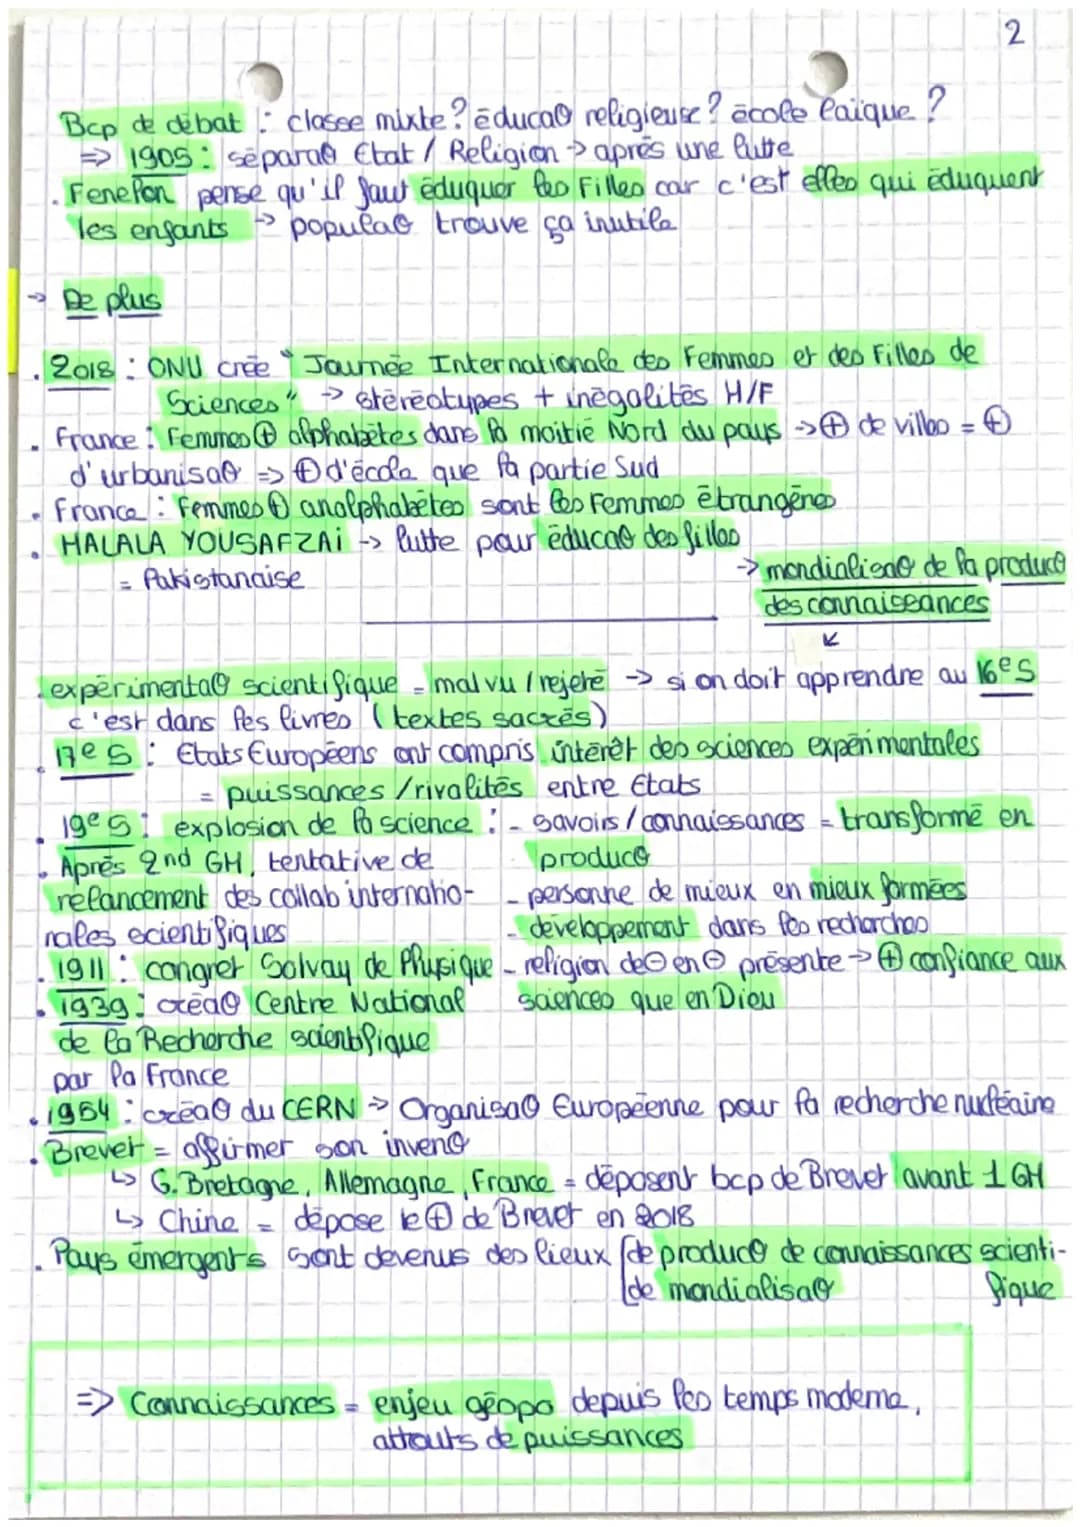 2
Bcp de débat : classe mixte ? éducaθ religieuse ? école laïque ?
=> 1905 : séparaθ Etat / Religion -> après une lutte
. Fenelon pense qu'il faut éduquer les Filles car c'est elles qui éduquent
les enfants -> populaθ trouve ça inutile
-> De plus
. 2018 : ONU crée "Journée Internationale des Femmes et des Filles de
Sciences" -> stéréotypes + inégalités H/F
. France : Femmes ⊕ alphabètes dans la moitié Nord du pays -> ⊕ de villes = ⊕
d'urbanisaθ => ⊕ d'école que la partie Sud
. France : Femmes ⊕ analphabètes sont les Femmes étrangères
. MALALA YOUSAFZAi -> lutte pour éducaθ des filles
= Pakistanaise
-> mondialisaθ de la producθ
des connaissances
↙
. expérimentaθ scientifique = mal vu / rejeté -> si on doit apprendre au 16e S
c'est dans les livres (textes sacrés)
. 17e S : Etats Européens ont compris intérêt des sciences expérimentales
= puissances / rivalités entre Etats
. 19e S : explosion de la science : - savoirs / connaissances = transformé en
producθ
- personne de mieux en mieux formées
- développement dans les recherches
- religion de ⊖ en ⊖ présente -> ⊕ confiance aux
sciences que en Dieu
. Après 2nd GH, tentative de
relancement des collab internatio-
nales scientifiques
. 1911 : congret Solvay de Physique
. 1939 : créaθ Centre National
de la Recherche scientifique
par la France
. 1954 : créaθ du CERN -> Organisaθ Européenne pour la recherche nucléaire
. Brevet = affirmer son invenθ
↳ G.Bretagne, Allemagne, France = déposent bcp de Brevet avant 1 GH
↳ Chine = dépose le ⊕ de Brevet en 2018
. Pays émergents sont devenus des lieux [de producθ de connaissances scienti-
fique
[de mondialisaθ
=> Connaissances = enjeu géopo depuis les temps moderne,
attouts de puissances